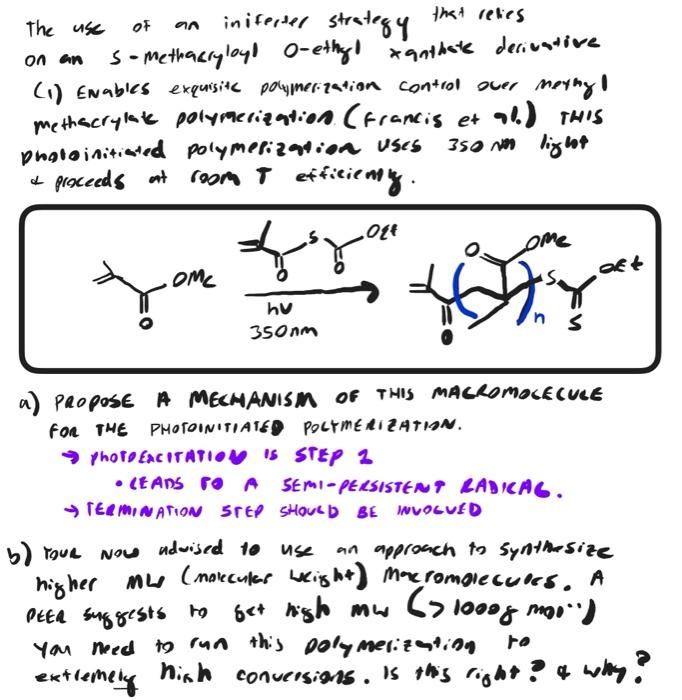 The use of an iniferter strategy that relies
on an S-methacryloyl O-ethyl xanthate derivative
(1) Enables exquisite polymerization control over methyl
methacrylate polymerization (Francis et al.) THIS
photoinitiated polymerization uses 350 nm light
& proceeds at room T efficiently.
S OEt
OMe O O
O hν
350nm
O OMe
S OEt
O n S
a) PROPOSE A MECHANISM OF THIS MACROMOLECULE
FOR THE PHOTOINITIATED POLYMERIZATION.
→ PHOTOEXCITATION IS STEP 1
• LEADS TO A SEMI-PERSISTENT RADICAL.
→ TERMINATION STEP SHOULD BE INVOLVED
b) YOUR NOW advised to use an approach to synthesize
higher MW (molecular weight) macromolecules. A
PEER suggests to get high MW (>1000g mol⁻¹)
you need to run this polymerization to
extremely high conversions. Is this right? & why?